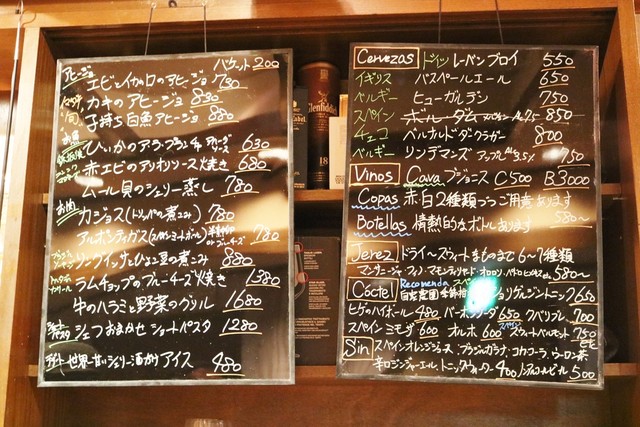 バケット200
アヒージョ
エビとイカ口のアヒージョ 730
カキのアヒージョ 830
子持ち白魚アヒージョ 880
ひいかのア・ラ・プランチャ 630
赤エビのアリオリソース焼き 680
ムール貝のシェリー蒸し 780
お肉 カジョス(トリッパの煮込み) 780
アルボンディガス 780
ひよこ豆の煮込み 880
ラムチョップのブルーチーズ焼き 1380
牛のハラミと野菜のグリル 1680
シェフおまかせ ショートパスタ 1280
世界一甘いシェリー酒がけアイス 480
Cervezas ドイツ レーベンブロイ 550
イギリス バスペールエール 650
ベルギー ヒューガルデン 750
スペイン ボールダム 850
チェコ ベルナルド 800
ベルギー リンデマンズ アップル 3.5% 750
Vinos Cava C500 B3000
Copas 赤・白2種類ずつご用意あります
Botellas 情熱的なボトルあります 580~
Jerez ドライ~スウィートなものまで6~7種類
580~
Cóctel Recomenda
ジントニック 650
ヒゲのハイボール 480 650 700
スペインミモザ 600 オルホ 600 750
Sin スペインオレンジジュース・ブラッドガラナ・コカコーラ・ウーロン茶
辛口ジンジャーエール、トニックウォーター 400 ノンアルコールビール 500